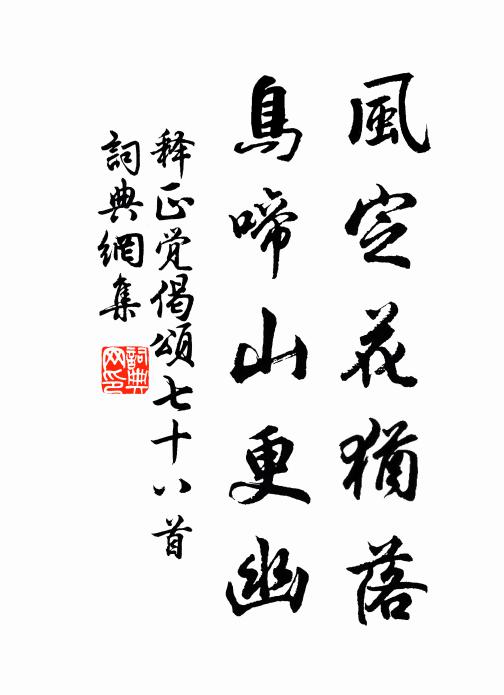 風定花猶落
鳥啼山更幽
释正觉偈頌七十八首
詞典網集
詞典网印